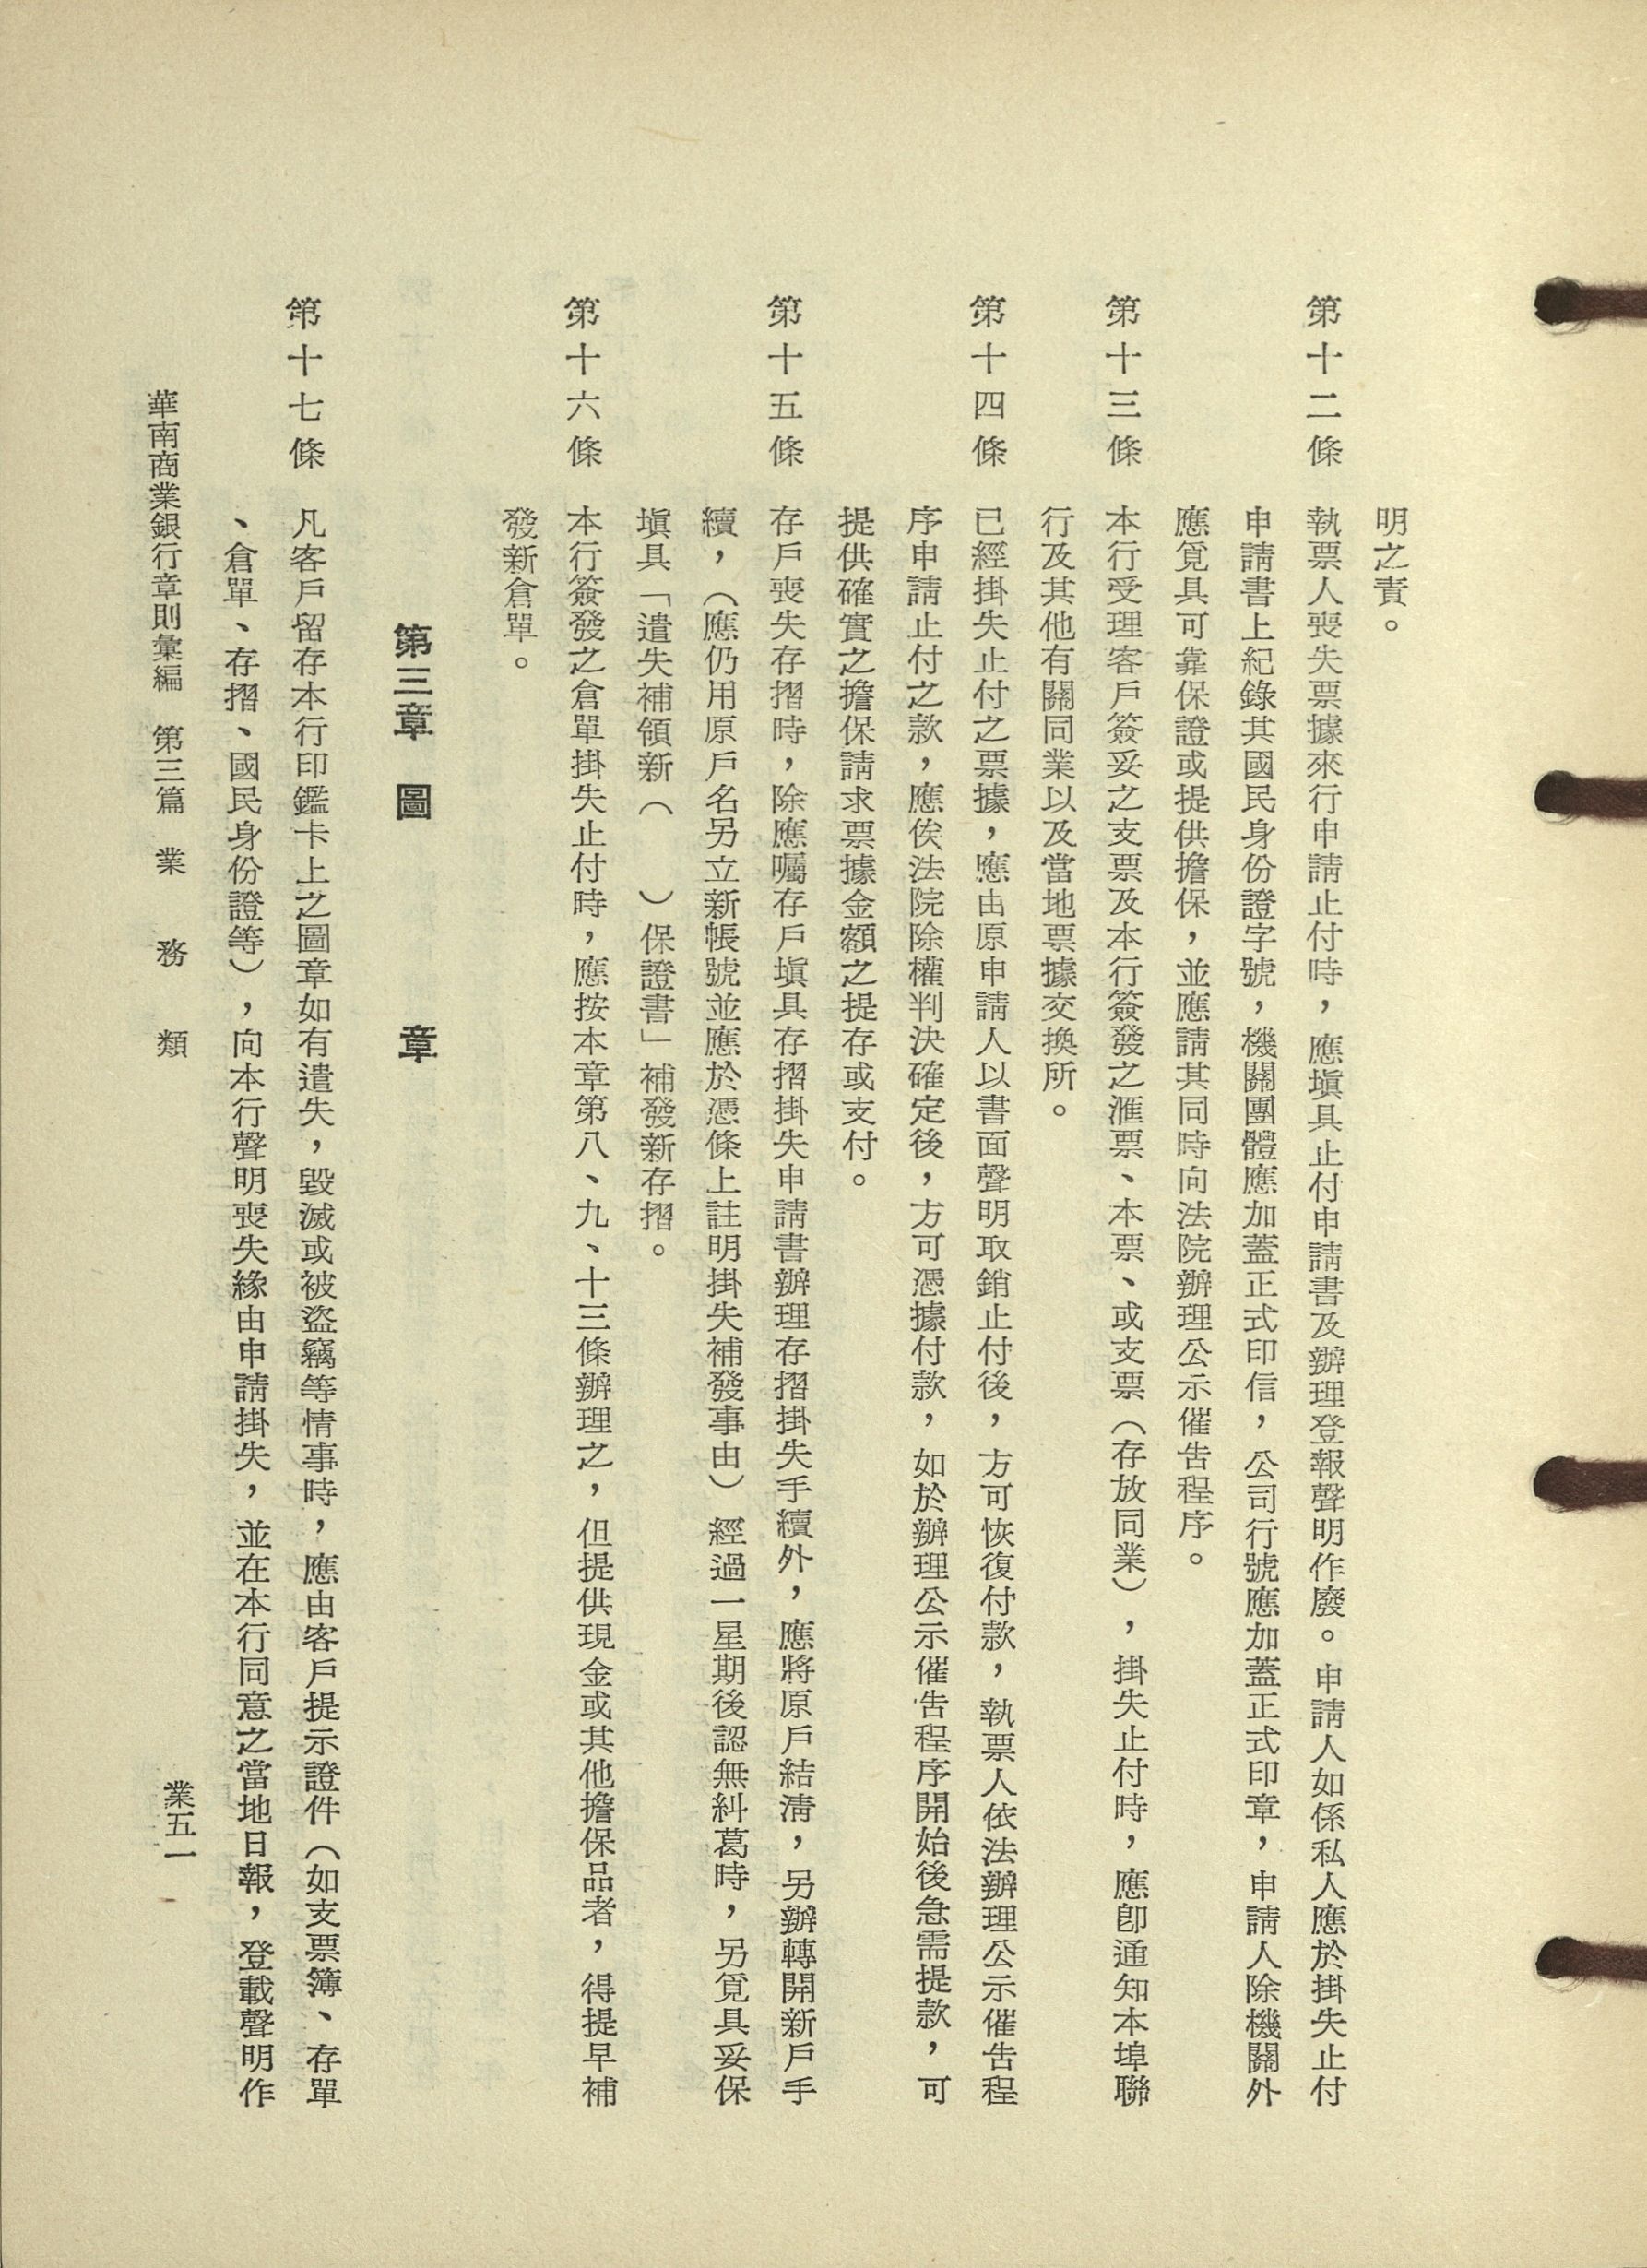 明之責。
第十二條　執票人喪失票據來行申請止付時，應塡具止付申請書及辦理登報聲明作廢。申請人如係私人應於掛失止付
申請書上紀錄其國民身份證字號，機關團體應加蓋正式印信，公司行號應加蓋正式印章，申請人除機關外
應覓具可靠保證或提供擔保，並應請其同時向法院辦理公示催告程序。
第十三條　本行受理客戶簽妥之支票及本行簽發之滙票、本票、或支票（存放同業），掛失止付時，應卽通知本埠聯
行及其他有關同業以及當地票據交換所。
第十四條　已經掛失止付之票據，應由原申請人以書面聲明取銷止付後，方可恢復付款，執票人依法辦理公示催告程
序申請止付之款，應俟法院除權判決確定後，方可憑據付款，如於辦理公示催告程序開始後急需提款，可
提供確實之擔保請求票據金額之提存或支付。
第十五條　存戶喪失存摺時，除應囑存戶塡具存摺掛失申請書辦理存摺掛失手續外，應將原戶結淸，另辦轉開新戶手
續，（應仍用原戶名另立新帳號並應於憑條上註明掛失補發事由）經過一星期後認無糾葛時，另覓具妥保
塡具「遺失補領新（　　）保證書」補發新存摺。
第十六條　本行簽發之倉單掛失止付時，應按本章第八、九、十三條辦理之，但提供現金或其他擔保品者，得提早補
發新倉單。
第三章　圖　　章
第十七條　凡客戶留存本行印鑑卡上之圖章如有遺失，毀滅或被盜竊等情事時，應由客戶提示證件（如支票簿、存單
、倉單、存摺、國民身份證等），向本行聲明喪失緣由申請掛失，並在本行同意之當地日報，登載聲明作
華南商業銀行章則彙編　第三篇　業　務　類　　業五一